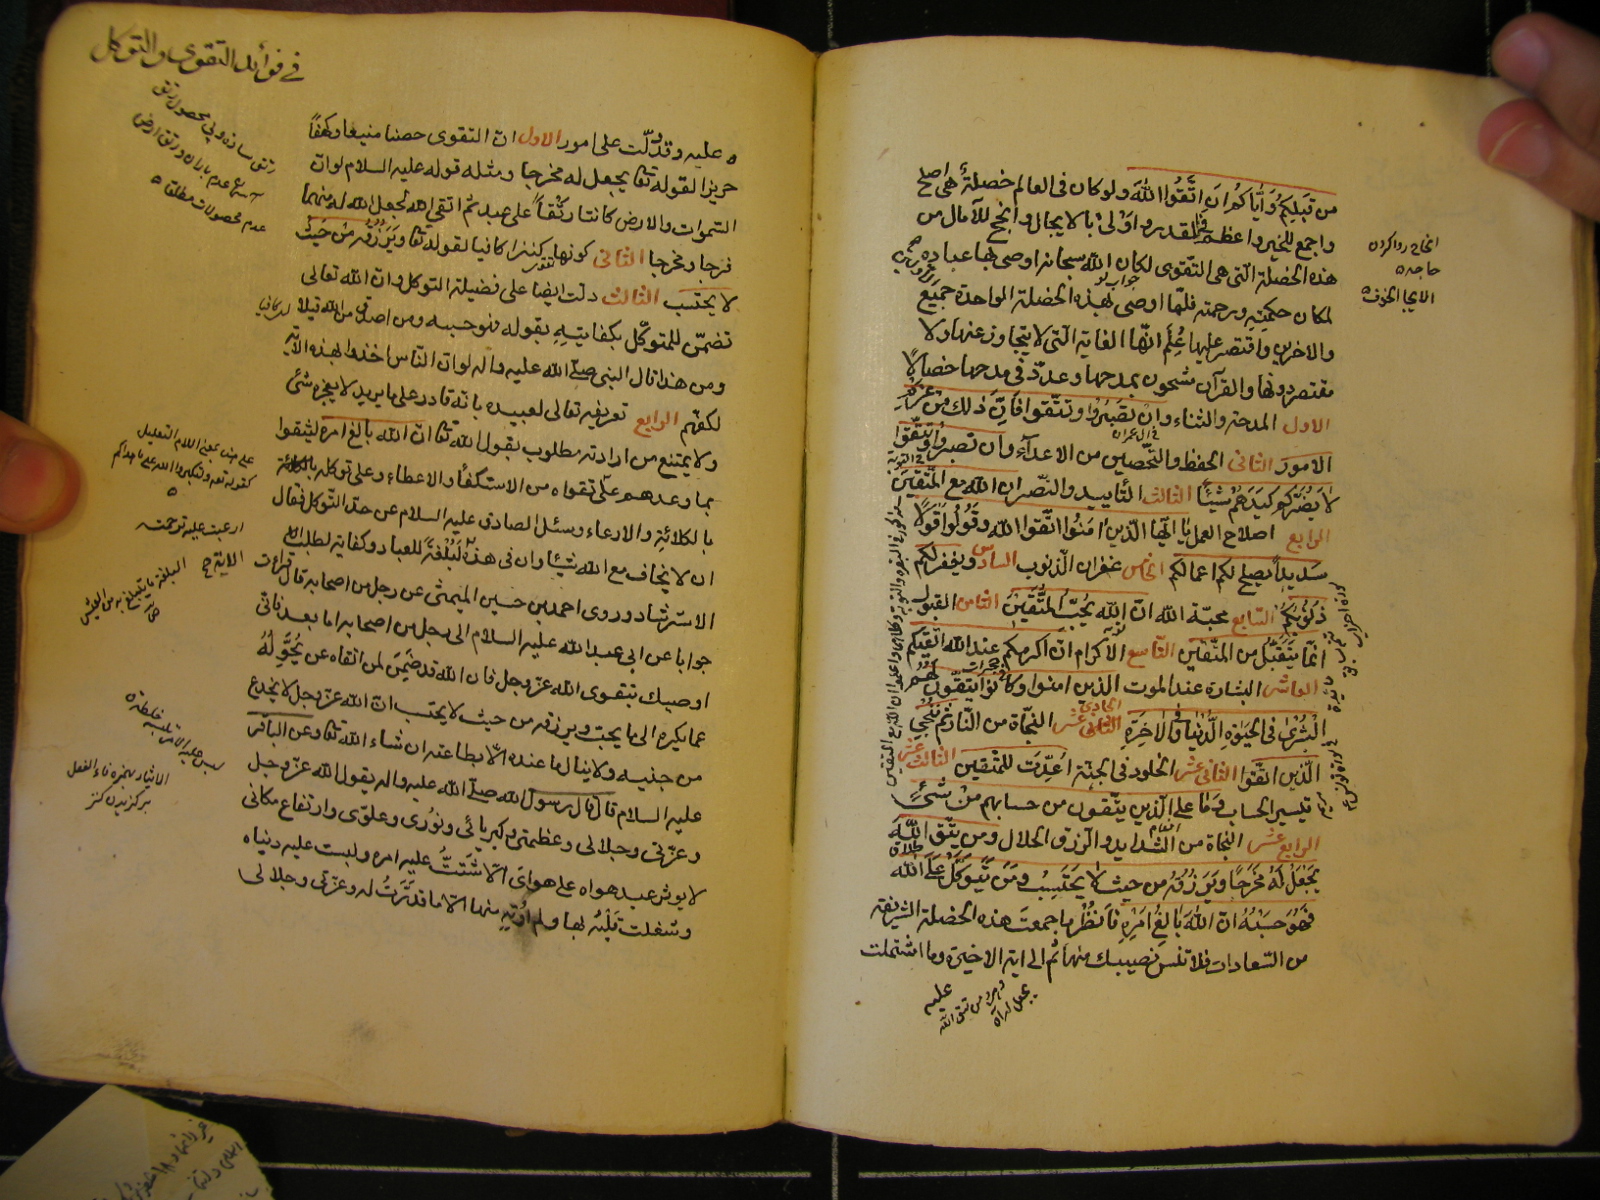 من قبلكم وإياكم ان اتقوا الله ولو كان في العالم خصلة هي اصلح
واجمع للخير واعظم في القدر واولى بالايجال وانجح للآمال من
هذه الخصلة التي هي التقوى لكان الله سبحانه اوصى بها عباده
لمكان حكمته ورحمته فلما اوصى بهذه الخصلة الواحدة جميع
والاخرين واقتصر عليها علم انها الغاية التي لا يتجاوز عنها ولا
مقتصر دونها والقرآن مشحون بمدحها وعدّد في مدحها خصالا
الاول المدحة والثناء وان تصبروا وتتقوا فان ذلك من عزم
الامور الثاني الحفظ والتحصين من الاعداء وان تصبروا وتتقوا
لا يضركم كيدهم شيئا الثالث التأييد والنصر ان الله مع المتقين
الرابع اصلاح العمل يا ايها الذين امنوا اتقوا الله وقولوا قولا
سديدا يصلح لكم اعمالكم الخامس غفران الذنوب السادس ويغفر لكم
ذنوبكم السابع محبة الله ان الله يحب المتقين الثامن القبول
انما يتقبل من المتقين التاسع الاكرام ان اكرمكم عند الله اتقيكم
العاشر البشارة عند الموت الذين امنوا وكانوا يتقون لهم
البشرى في الحيوة الدنيا وفي الاخرة الحادي عشر النجاة من النار ثم ننجي
الذين اتقوا الثاني عشر الخلود في الجنة اعدت للمتقين الثالث عشر
تيسير الحساب وما على الذين يتقون من حسابهم من شيء
الرابع عشر النجاة من الشدايد والرزق الحلال ومن يتق الله
يجعل له مخرجا ويرزقه من حيث لا يحتسب ومن يتوكل على الله
فهو حسبه ان الله بالغ امره فانظر ما جمعت هذه الخصلة الشريفة
من السعادات فلا تنس نصيبك منها ثم الى اية الاخيرة وما اشتملت
عليه
انجاح روا كردن
حاجة
في فوائد التقوى والتوكل
عليه وقد دلت على امور الاول ان التقوى حصنا منيعا وكهفا
حريزا لقوله تعا يجعل له مخرجا ومثله قوله عليه السلام لو ان
السموات والارض كانتا رتقا على عبد ثم اتقى الله لجعل الله له منهما
فرجا ومخرجا الثاني كونها كنزا كافيا لقوله تعا ويرزقه من حيث
لا يحتسب الثالث دلت ايضا على فضيلة التوكل وان الله تعالى
تضمن للمتوكل بكفايته بقوله فهو حسبه ومن اصدق من الله قيلا
ومن هذا قال النبي صلى الله عليه واله لو ان الناس اخذوا بهذه الاية
لكفتهم الرابع تعريفه تعالى لعبيده بانه قادر على ما يريد لا يعجزه شئ
ولا يمتنع من ارادته مطلوب بقول الله تعا ان الله بالغ امره ليثقوا
بما وعدهم على تقواه من الاستكفاء والاعطاء وعلى توكله بالكلائة
بالكلائة والارعاء وسئل الصادق عليه السلام عن حد التوكل فقال
ان لا تخاف مع الله شيئا وان في هذه لبلغة للعباد وكفاية لطلب
الاسترشاد وروى احمد بن حسين الميثمي عن رجل من اصحابه قال قرات
جوابا عن ابي عبد الله عليه السلام الى رجل من اصحابه اما بعد فاني
اوصيك بتقوى الله عز وجل فان الله قد ضمن لمن اتقاه عن يحوله
عما يكره الى ما يحب ويرزقه من حيث لا يحتسب ان الله عز وجل لا يخدع
من جنبه ولا ينال ما عنده الا بطاعته ان شاء الله تعا وعن الباقر
عليه السلام قال قال رسول الله صلى الله عليه واله يقول الله عز وجل
وعزتي وجلالي وعظمتي وكبريائي ونوري وعلوي وارتفاع مكاني
لا يوثر عبد هواه على هواي الا شتتت عليه امره ولبست عليه دنياه
وشغلت قلبه بها ولم اوته منها الا ما قدرت له وعزتي وجلالي
عدم محصولات مطلقا